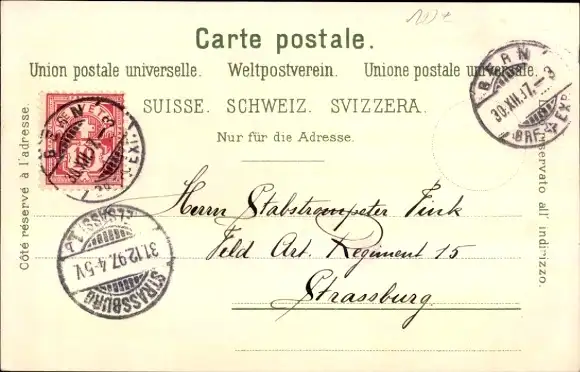 Carte postale.
Union postale universelle. Weltpostverein. Unione postale universale.
SUISSE. SCHWEIZ. SVIZZERA.
Nur für die Adresse.
Côté réservé à l'adresse.
BERN
30.XII.97.
BRF. EXP.
BERN
30.XII.97.–3
BRF. EXP.
STRASSBURG
31.12.97. 4-5V
Herrn Stabstrompeter Fink
Feld Art. Regiment 15
Strassburg.
riservato all' indirizzo.